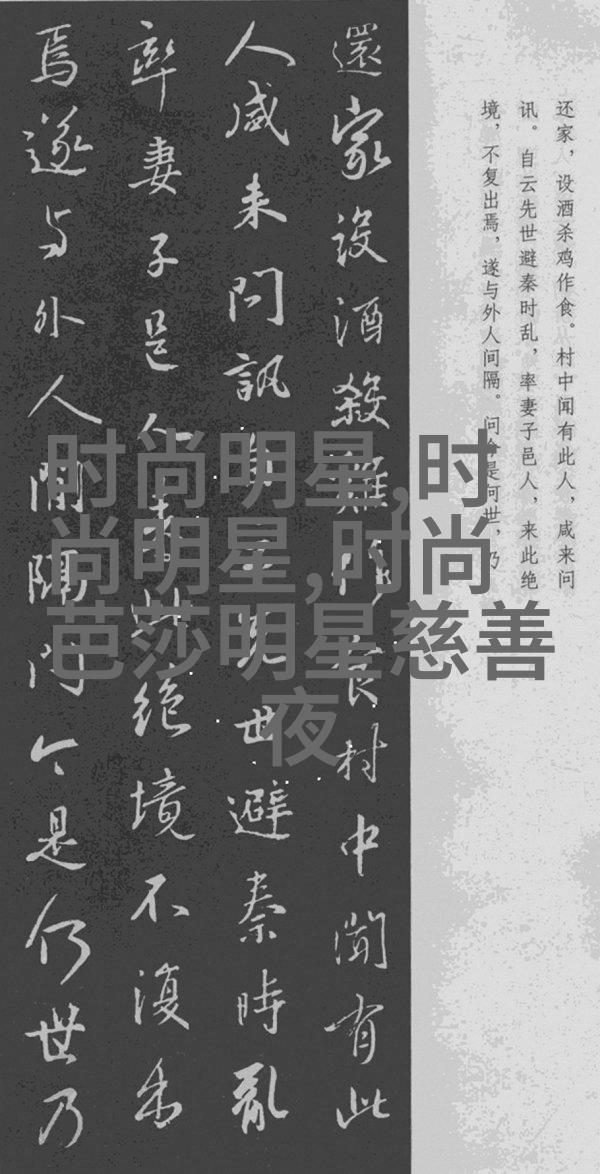 还家，设酒杀鸡作食。村中闻有此人，咸来问
讯。自云先世避秦时乱，率妻子邑人，来此绝
境，不复出焉，遂与外人间隔。问今是何世，乃
還家設酒殺雞作食村中聞有此
人咸来問訊自云先世避秦時亂
率妻子邑人来此絶境不復出
焉遂与外人間隔问今是何世乃
时尚明星,时
尚明星,时尚
芭莎明星慈善
夜